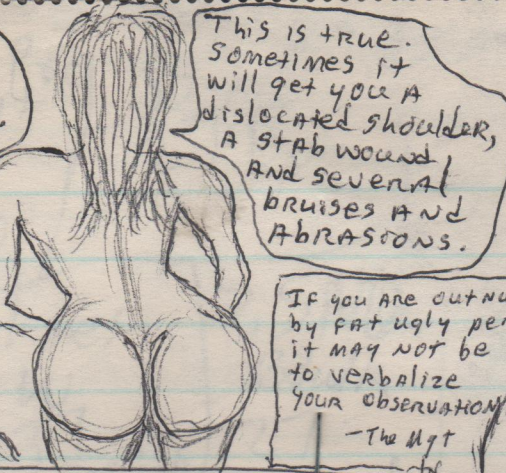 This is true.
Sometimes it
will get you A
dislocated shoulder,
A stab wound,
And several
bruises And
AbrAsions.
If you Are outnu
by fAt ugly pe
it mAy not be
to verbalize
your observation
-The Mgt